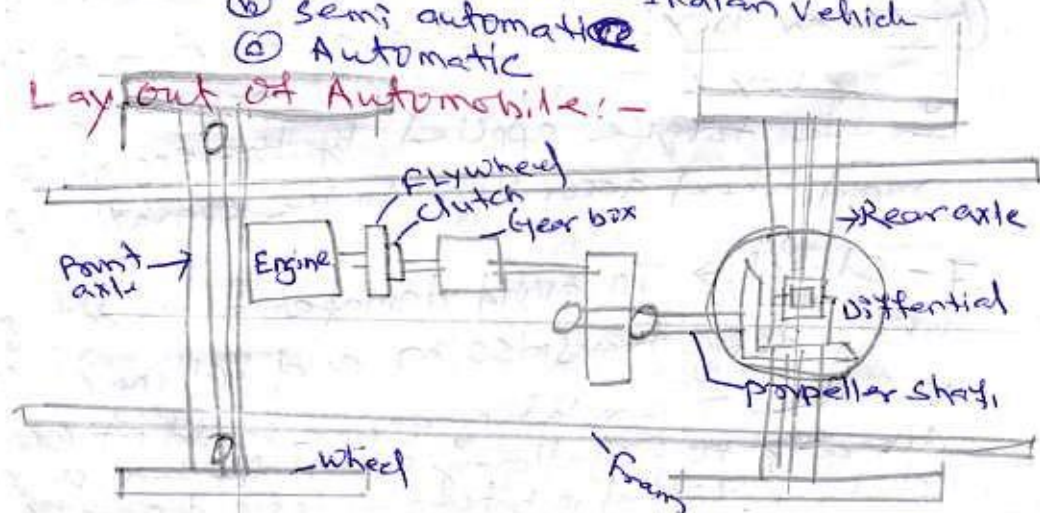 (b) Semi automatic
Indian Vehick
(a) Automatic
Layout Of Automobile:-
FLYwheel
Clutch
Gear box
Rear axle
Front axle
Engine
Diffential
propeller shaft
Wheel
Fram